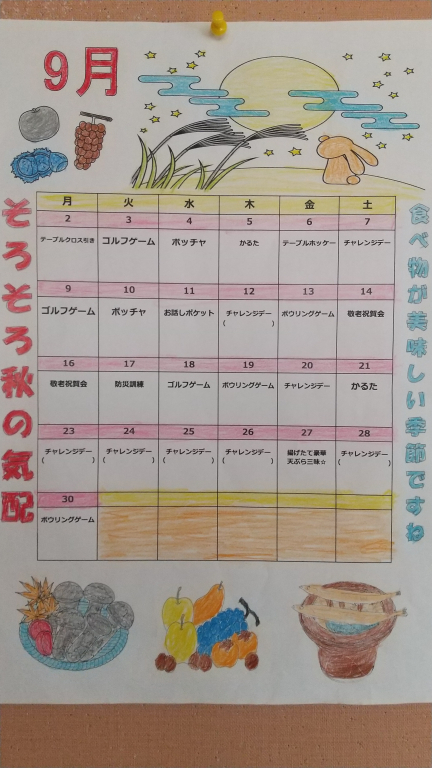 9月
そろそろ秋の気配
食べ物が美味しい季節ですね
月 火 水 木 金 土
2 3 4 5 6 7
テーブルクロス引き ゴルフゲーム ボッチャ かるた テーブルホッケー チャレンジデー
9 10 11 12 13 14
ゴルフゲーム ボッチャ お話しポケット チャレンジデー ボウリングゲーム 敬老祝賀会
( )
16 17 18 19 20 21
敬老祝賀会 防災訓練 ゴルフゲーム ボウリングゲーム チャレンジデー かるた
23 24 25 26 27 28
チャレンジデー チャレンジデー チャレンジデー チャレンジデー 揚げたて豪華 チャレンジデー
( ) ( ) ( ) ( ) 天ぷら三昧☆ ( )
30
ボウリングゲーム